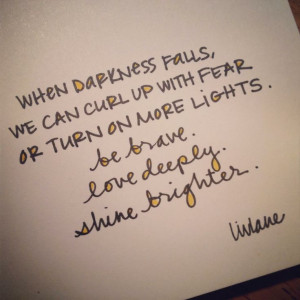 WHEN DARKNESS FALLS,
WE CAN CURL UP WITH FEAR
OR TURN ON MORE LIGHTS.
be brave.
love deeply.
shine brighter.
liv lane